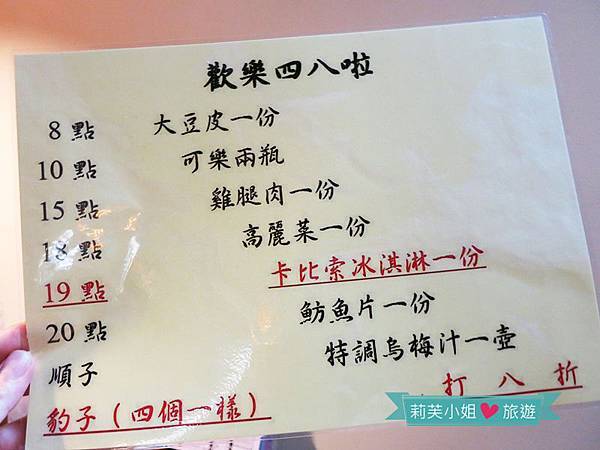 歡樂四八啦
8 點 大豆皮一份
10 點 可樂兩瓶
15 點 雞腿肉一份
18 點 高麗菜一份
19 點 卡比索冰淇淋一份
20 點 魴魚片一份
順子 特調烏梅汁一壺
豹子（四個一樣） 打 八 折
莉芙小姐❤旅遊